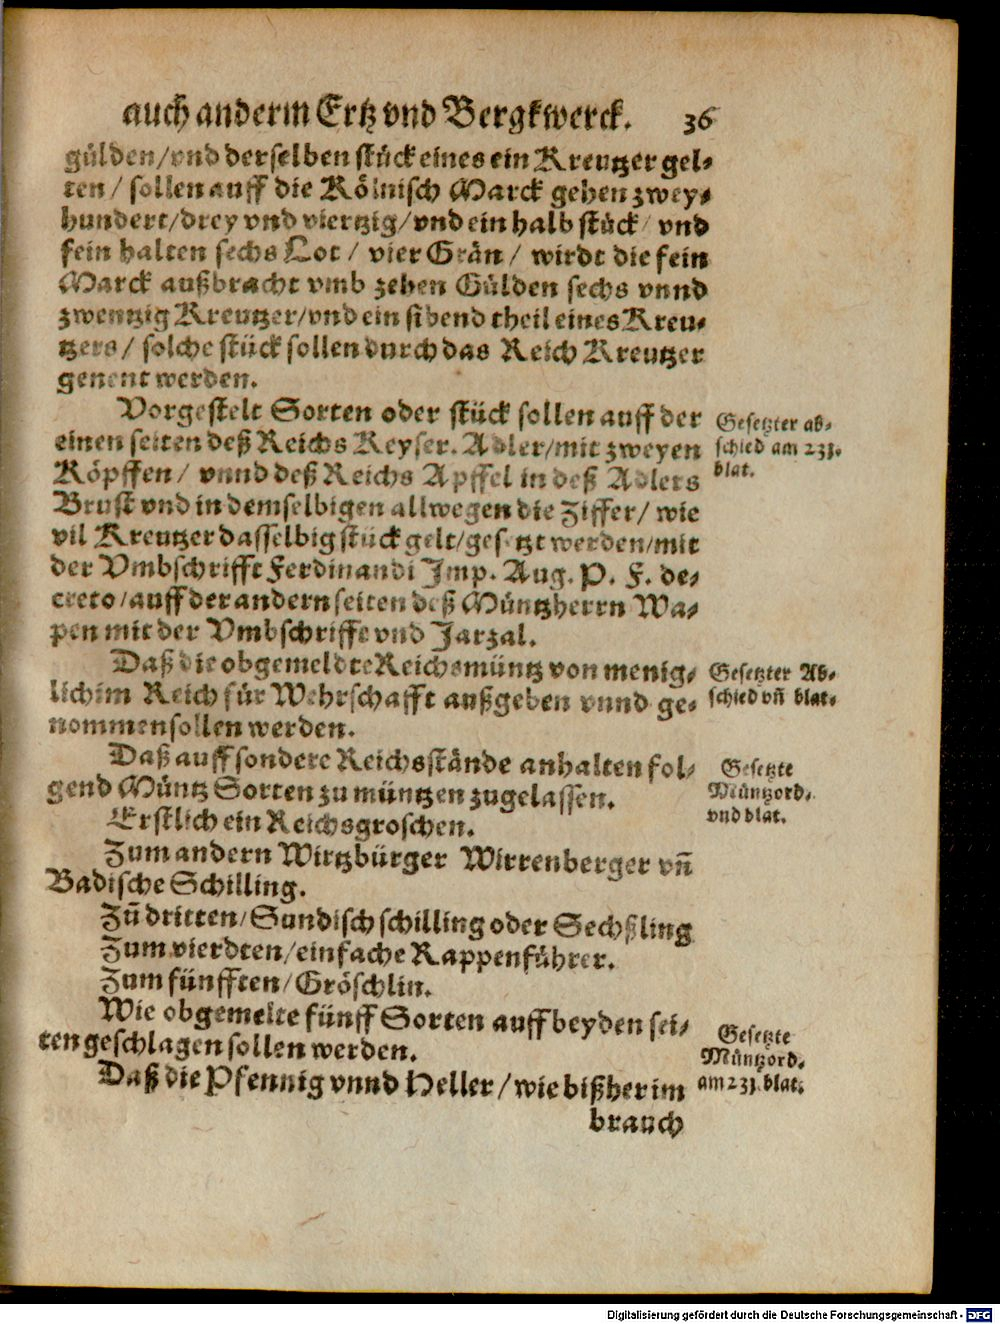 auch anderm Ertz vnd Bergkwerck. 36
gülden/vnd derselben stück eines ein Kreutzer gel-
ten/ sollen auff die Kölnisch Marck gehen zwey-
hundert/drey vnd viertzig/vnd ein halb stück/ vnd
fein halten sechs Lot/ vier Grän/ wirdt die fein
Marck außbracht vmb zehen Gülden sechs vnnd
zwentzig Kreutzer/vnd ein sibend theil eines Kreu-
tzers/ solche stück sollen durch das Reich Kreutzer
genent werden.
Vorgestelt Sorten oder stück sollen auff der
einen seiten deß Reichs Keyser. Adler/mit zweyen
Köpffen/ vnnd deß Reichs Apffel in deß Adlers
Brust vnd in demselbigen allwegen die Ziffer/ wie
vil Kreutzer dasselbig stück gelt/gesetzt werden/mit
der Vmbschrifft Ferdinandi Imp. Aug. P. F. de-
creto/auff der andern seiten deß Müntzherrn Wa-
pen mit der Vmbschrifft vnd Jarzal.
Gesetzter ab-
schied am 231.
blat.
Daß die obgemeldte Reichsmüntz von menig-
lich im Reich für Wehrschafft außgeben vnnd ge-
nommen sollen werden.
Gesetzter Ab-
schied vñ blat.
Daß auff sondere Reichsstände anhalten fol-
gend Müntz Sorten zu müntzen zugelassen.
Gesetzte
Müntzord.
vnd blat.
Erstlich ein Reichsgroschen.
Zum andern Wirtzbürger Wirtenberger vñ
Badische Schilling.
Zũ dritten/Sundisch schilling oder Sechßling
Zum vierdten/einfache Rappenführer.
Zum fünfften/Gröschlin.
Wie obgemelte fünff Sorten auff beyden sei-
ten geschlagen sollen werden.
Gesetzte
Müntzord.
am 231. blat.
Daß die Pfennig vnnd Heller/wie bißher im
brauch
Digitalisierung gefördert durch die Deutsche Forschungsgemeinschaft - DFG